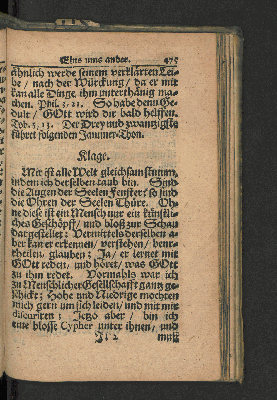 Eins ums ander. 475
ähnlich werde seinem verklärten Lei-
be / nach der Würckung / da er mit
kan alle Dinge ihm unterthänig ma-
chen. Phil. 3, 21. So habe denn Ge-
dult / GOtt wird dir bald helffen.
Tob. 5, 13. Der Drey und zwantzigste
führet folgenden Jammer-Thon.
Klage.
Mir ist alle Welt gleichsam stumm,
indem ich derselben taub bin. Sind
die Augen der Seelen Fenster / so sind
die Ohren der Seelen Thüre. Oh-
ne diese ist ein Mensch nur ein künstli-
ches Geschöpff / und bloß zur Schau
dargestellet: Vermittels derselben a-
ber kan er erkennen / verstehen / beur-
theilen, glauben: Ja / er lernet mit
GOtt reden, und höret / was GOtt
zu ihm redet. Vormahls war ich
zu Menschlicher Gesellschafft gantz ge-
schickt; Hohe und Niedrige mochten
mich gern um sich leiden / und mit mir
discuriren: Jetzo aber / bin ich
eine blosse Cypher unter ihnen / und